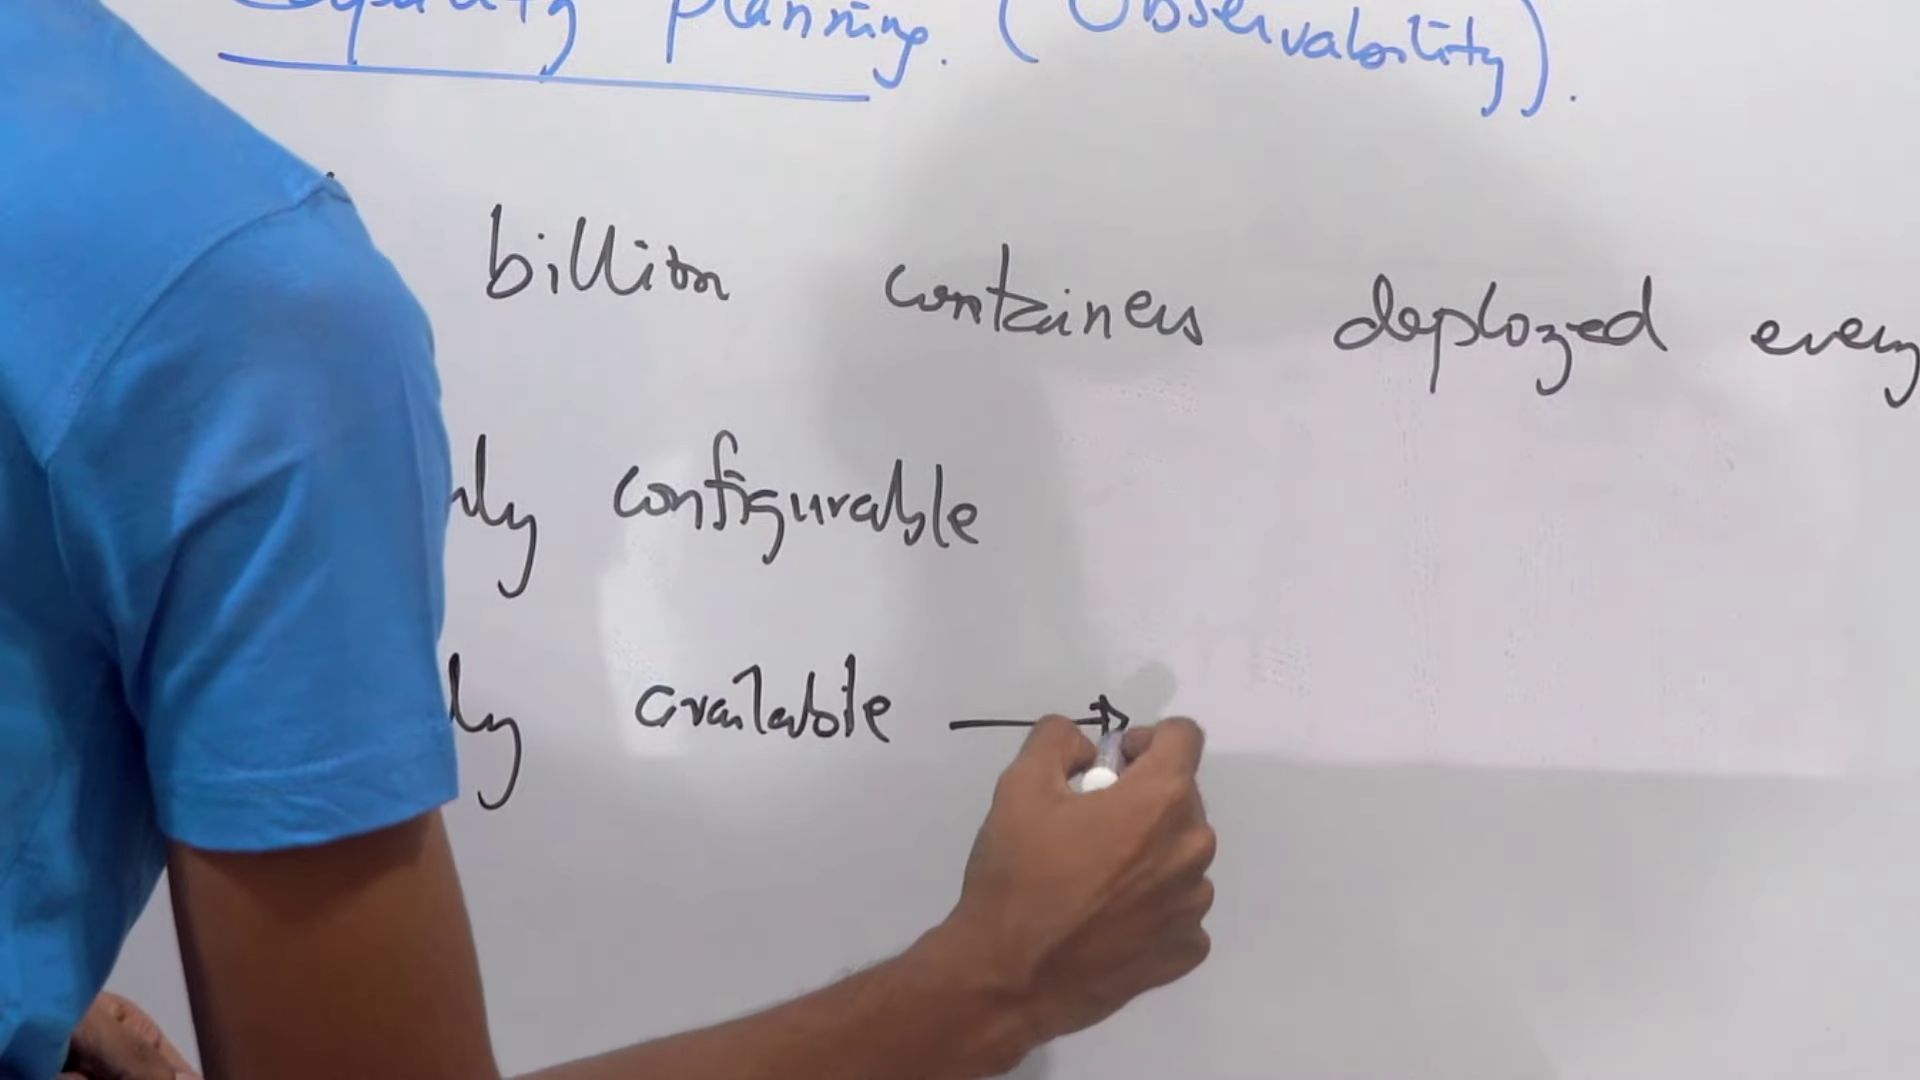 Capacity planning. (Observability).
billion containers deployed every
ly configurable
ly available →